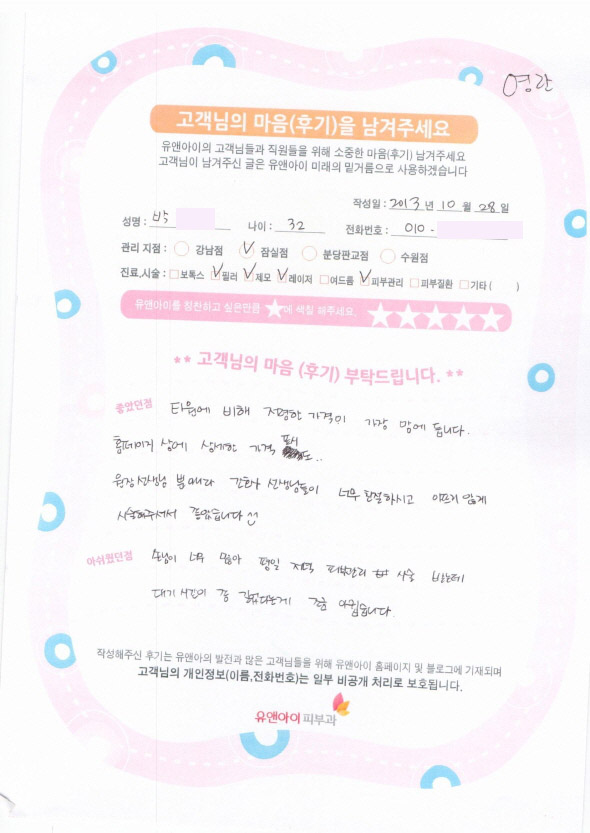 영란
고객님의 마음(후기)을 남겨주세요
유앤아이의 고객님들과 직원들을 위해 소중한 마음(후기) 남겨주세요
고객님이 남겨주신 글은 유앤아이 미래의 밑거름으로 사용하겠습니다
작성일 : 2013 년 10 월 28 일
성명 : 박 나이 : 32 전화번호 : 010 -
관리 지점 : 강남점 잠실점 분당판교점 수원점
진료,시술 : 보톡스 필러 제모 레이저 여드름 피부관리 피부질환 기타 ( )
유앤아이를 칭찬하고 싶은만큼 ★에 색칠 해주세요. ★★★★★
** 고객님의 마음 (후기) 부탁드립니다. **
좋았던점 타원에 비해 저렴한 가격이 가장 맘에 듭니다.
홈페이지 상에 상세한 가격 표시도..
원장선생님 뿐 아니라 간호사 선생님들이 너무 친절하시고 아프지 않게
시술해주셔서 좋았습니다
아쉬웠던점 손님이 너무 많아 평일 저녁 피부관리 시술 받는데
대기 시간이 좀 길었다는게 조금 아쉽습니다.
작성해주신 후기는 유앤아의 발전과 많은 고객님들을 위해 유앤아이 홈페이지 및 블로그에 기재되며
고객님의 개인정보(이름,전화번호)는 일부 비공개 처리로 보호됩니다.
유앤아이 피부과